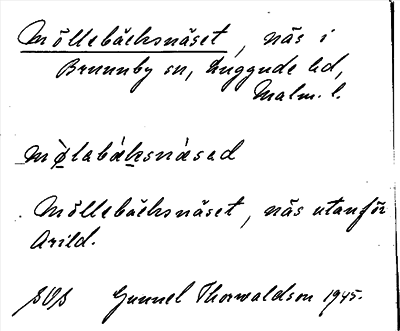 Möllebäcksnäset, näs i
Brunnby sn, Luggude hd,
Malm. l.
mø̀labáksnásad
Möllebäcksnäset, näs utanför
Arild.
Gunnel Thorwaldson 1945.